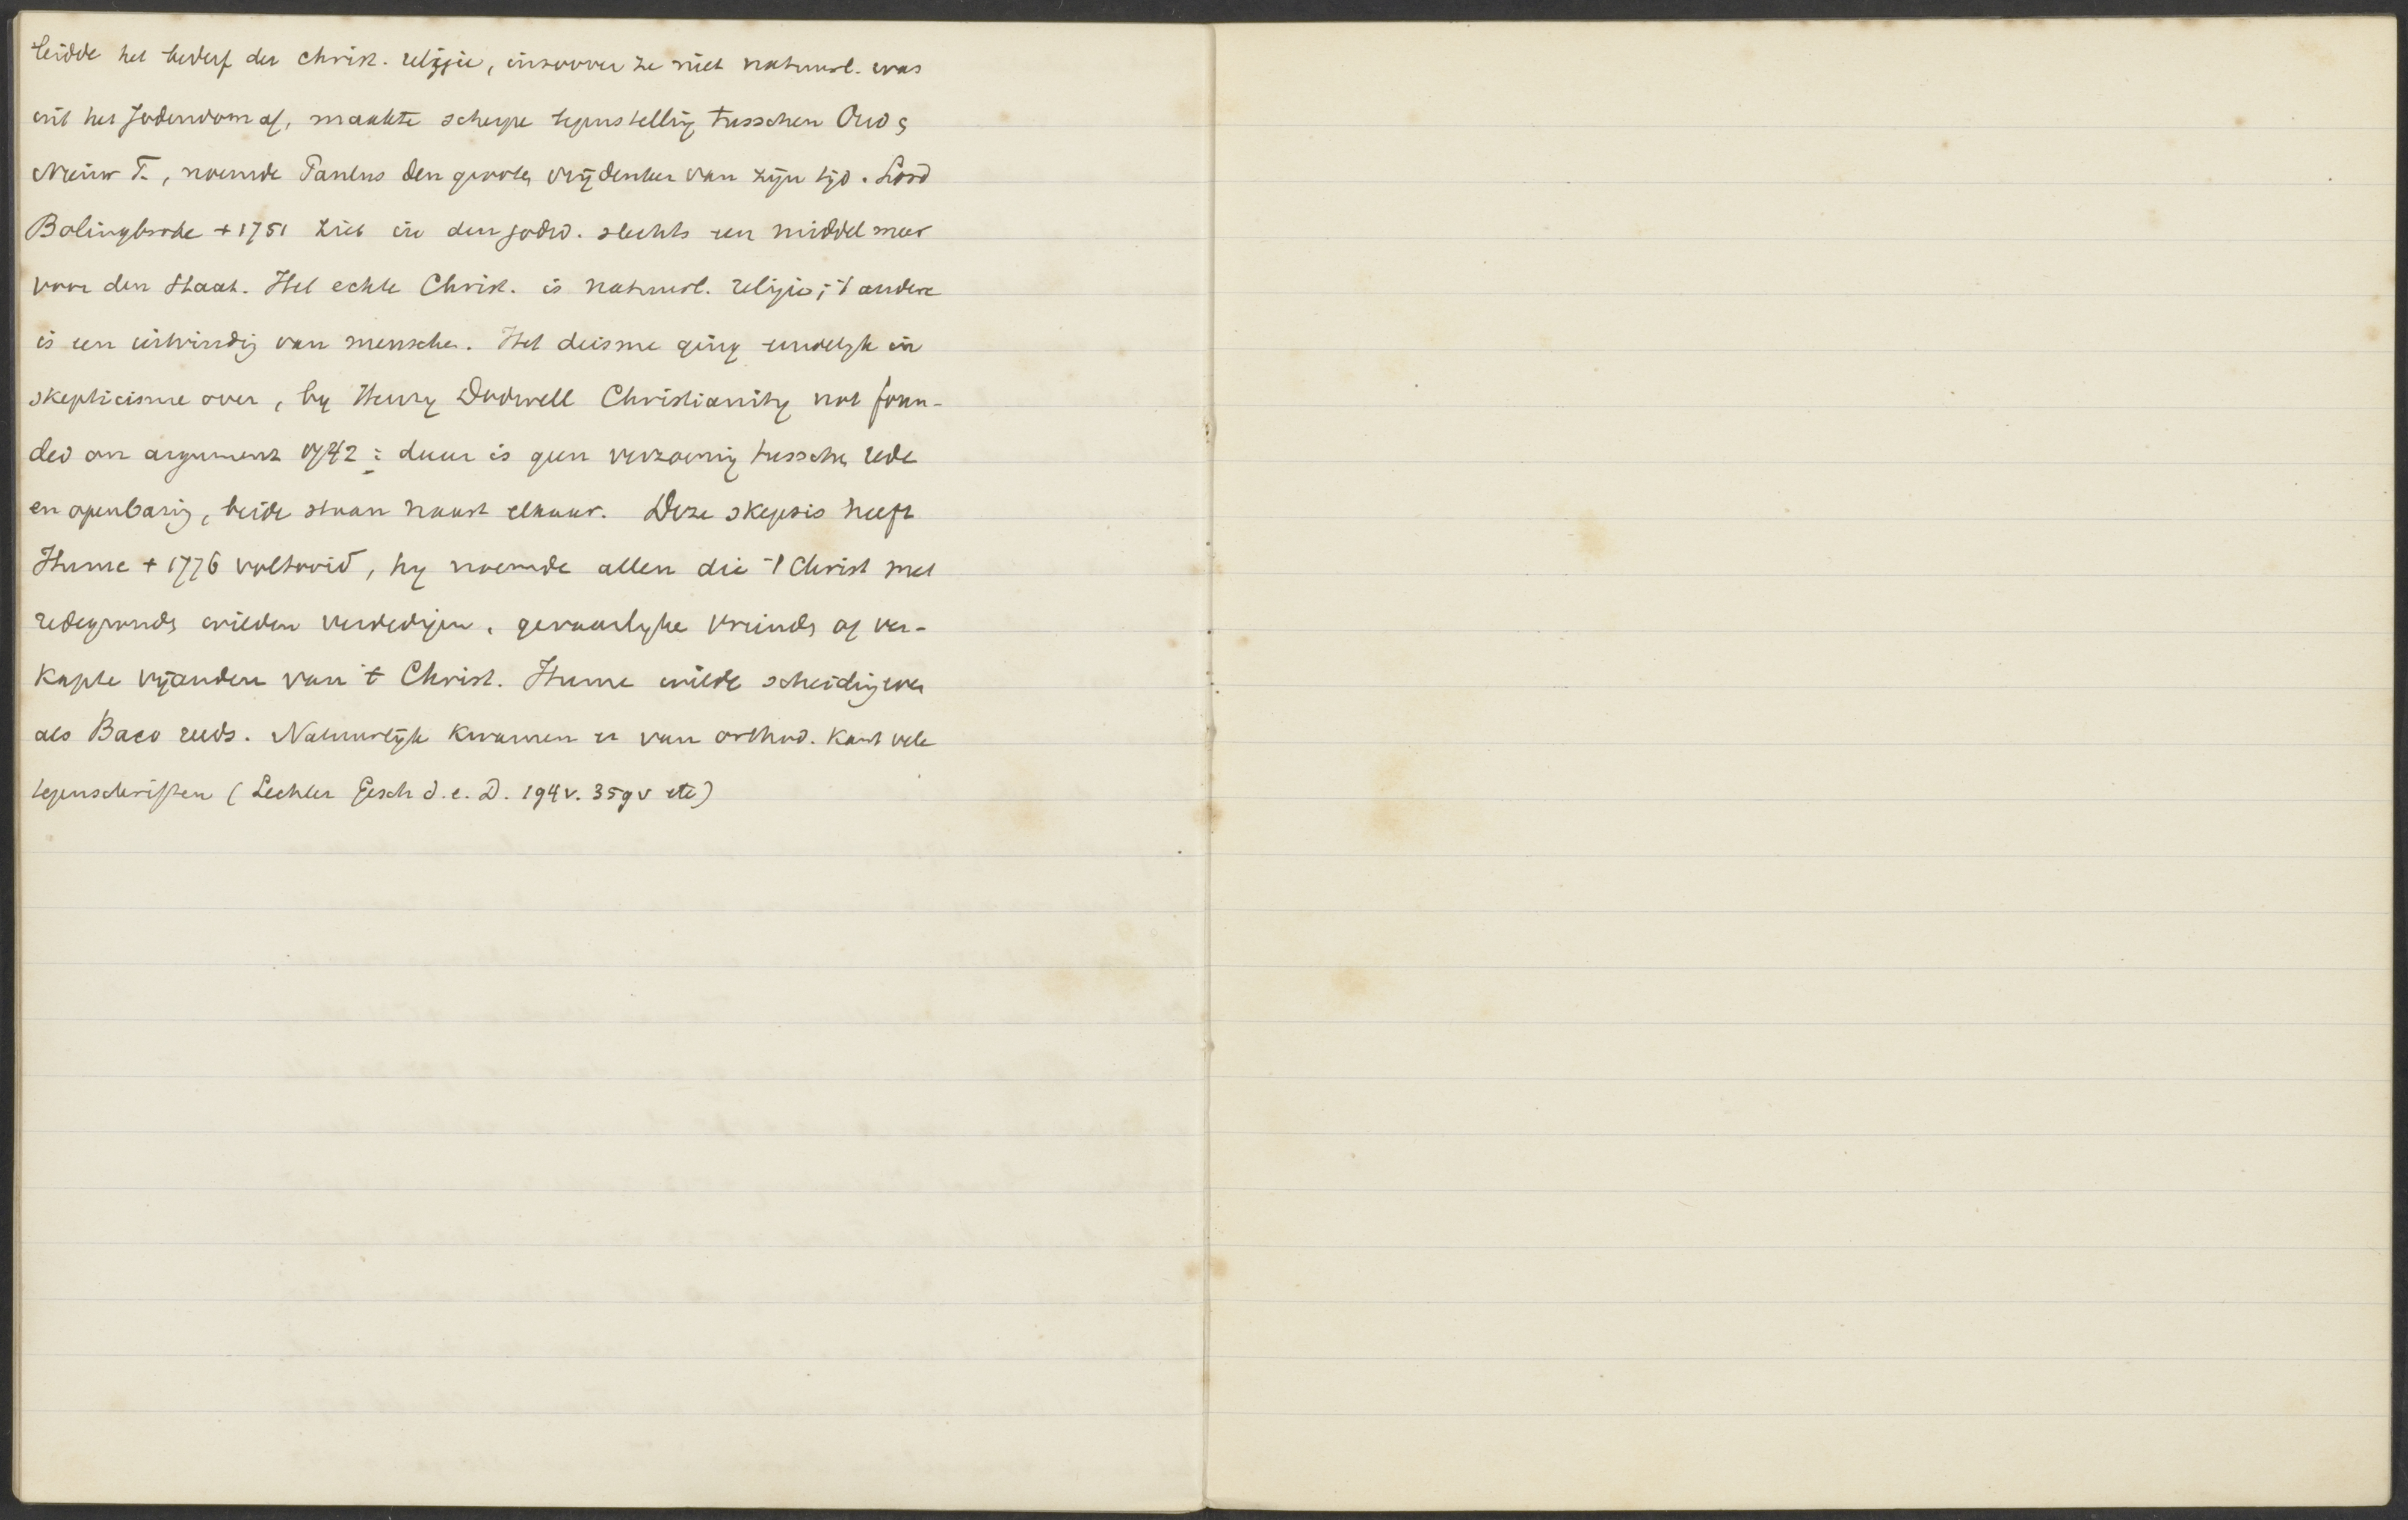 leidde het bederf der christ. religie, inzoover ze niet natuurl. was
uit het Jodendom af, maakte scherpe tegenstelling tusschen Oud &
Nieuw T., noemde Paulus den grooten vrijdenker van zijn tijd. Lord
Bolingbroke + 1751 ziet in den godsd. slechts een middel meer
voor den Staat. Het echte Christ. is natuurl. religie; 't andere
is een uitvinding van menschen. Het deisme ging eindelijk in
skepticisme over, by Henry Dodwell Christianity not foun-
ded on argument 1742: daar is geen verzoening tusschen rede
en openbaring, beide staan naast elkaar. Deze skepsis heeft
Hume + 1776 voltooid, hy noemde allen die 't Christ met
redegronden wilden verdedigen, gevaarlyke vrienden of ver-
kapte vijanden van 't Christ. Hume wilde scheiding
als Baco reeds. Natuurlijk kwamen er van orthod. kant vele
tegenschriften (Lechler Gesch d. e. D. 194v. 359v etc)